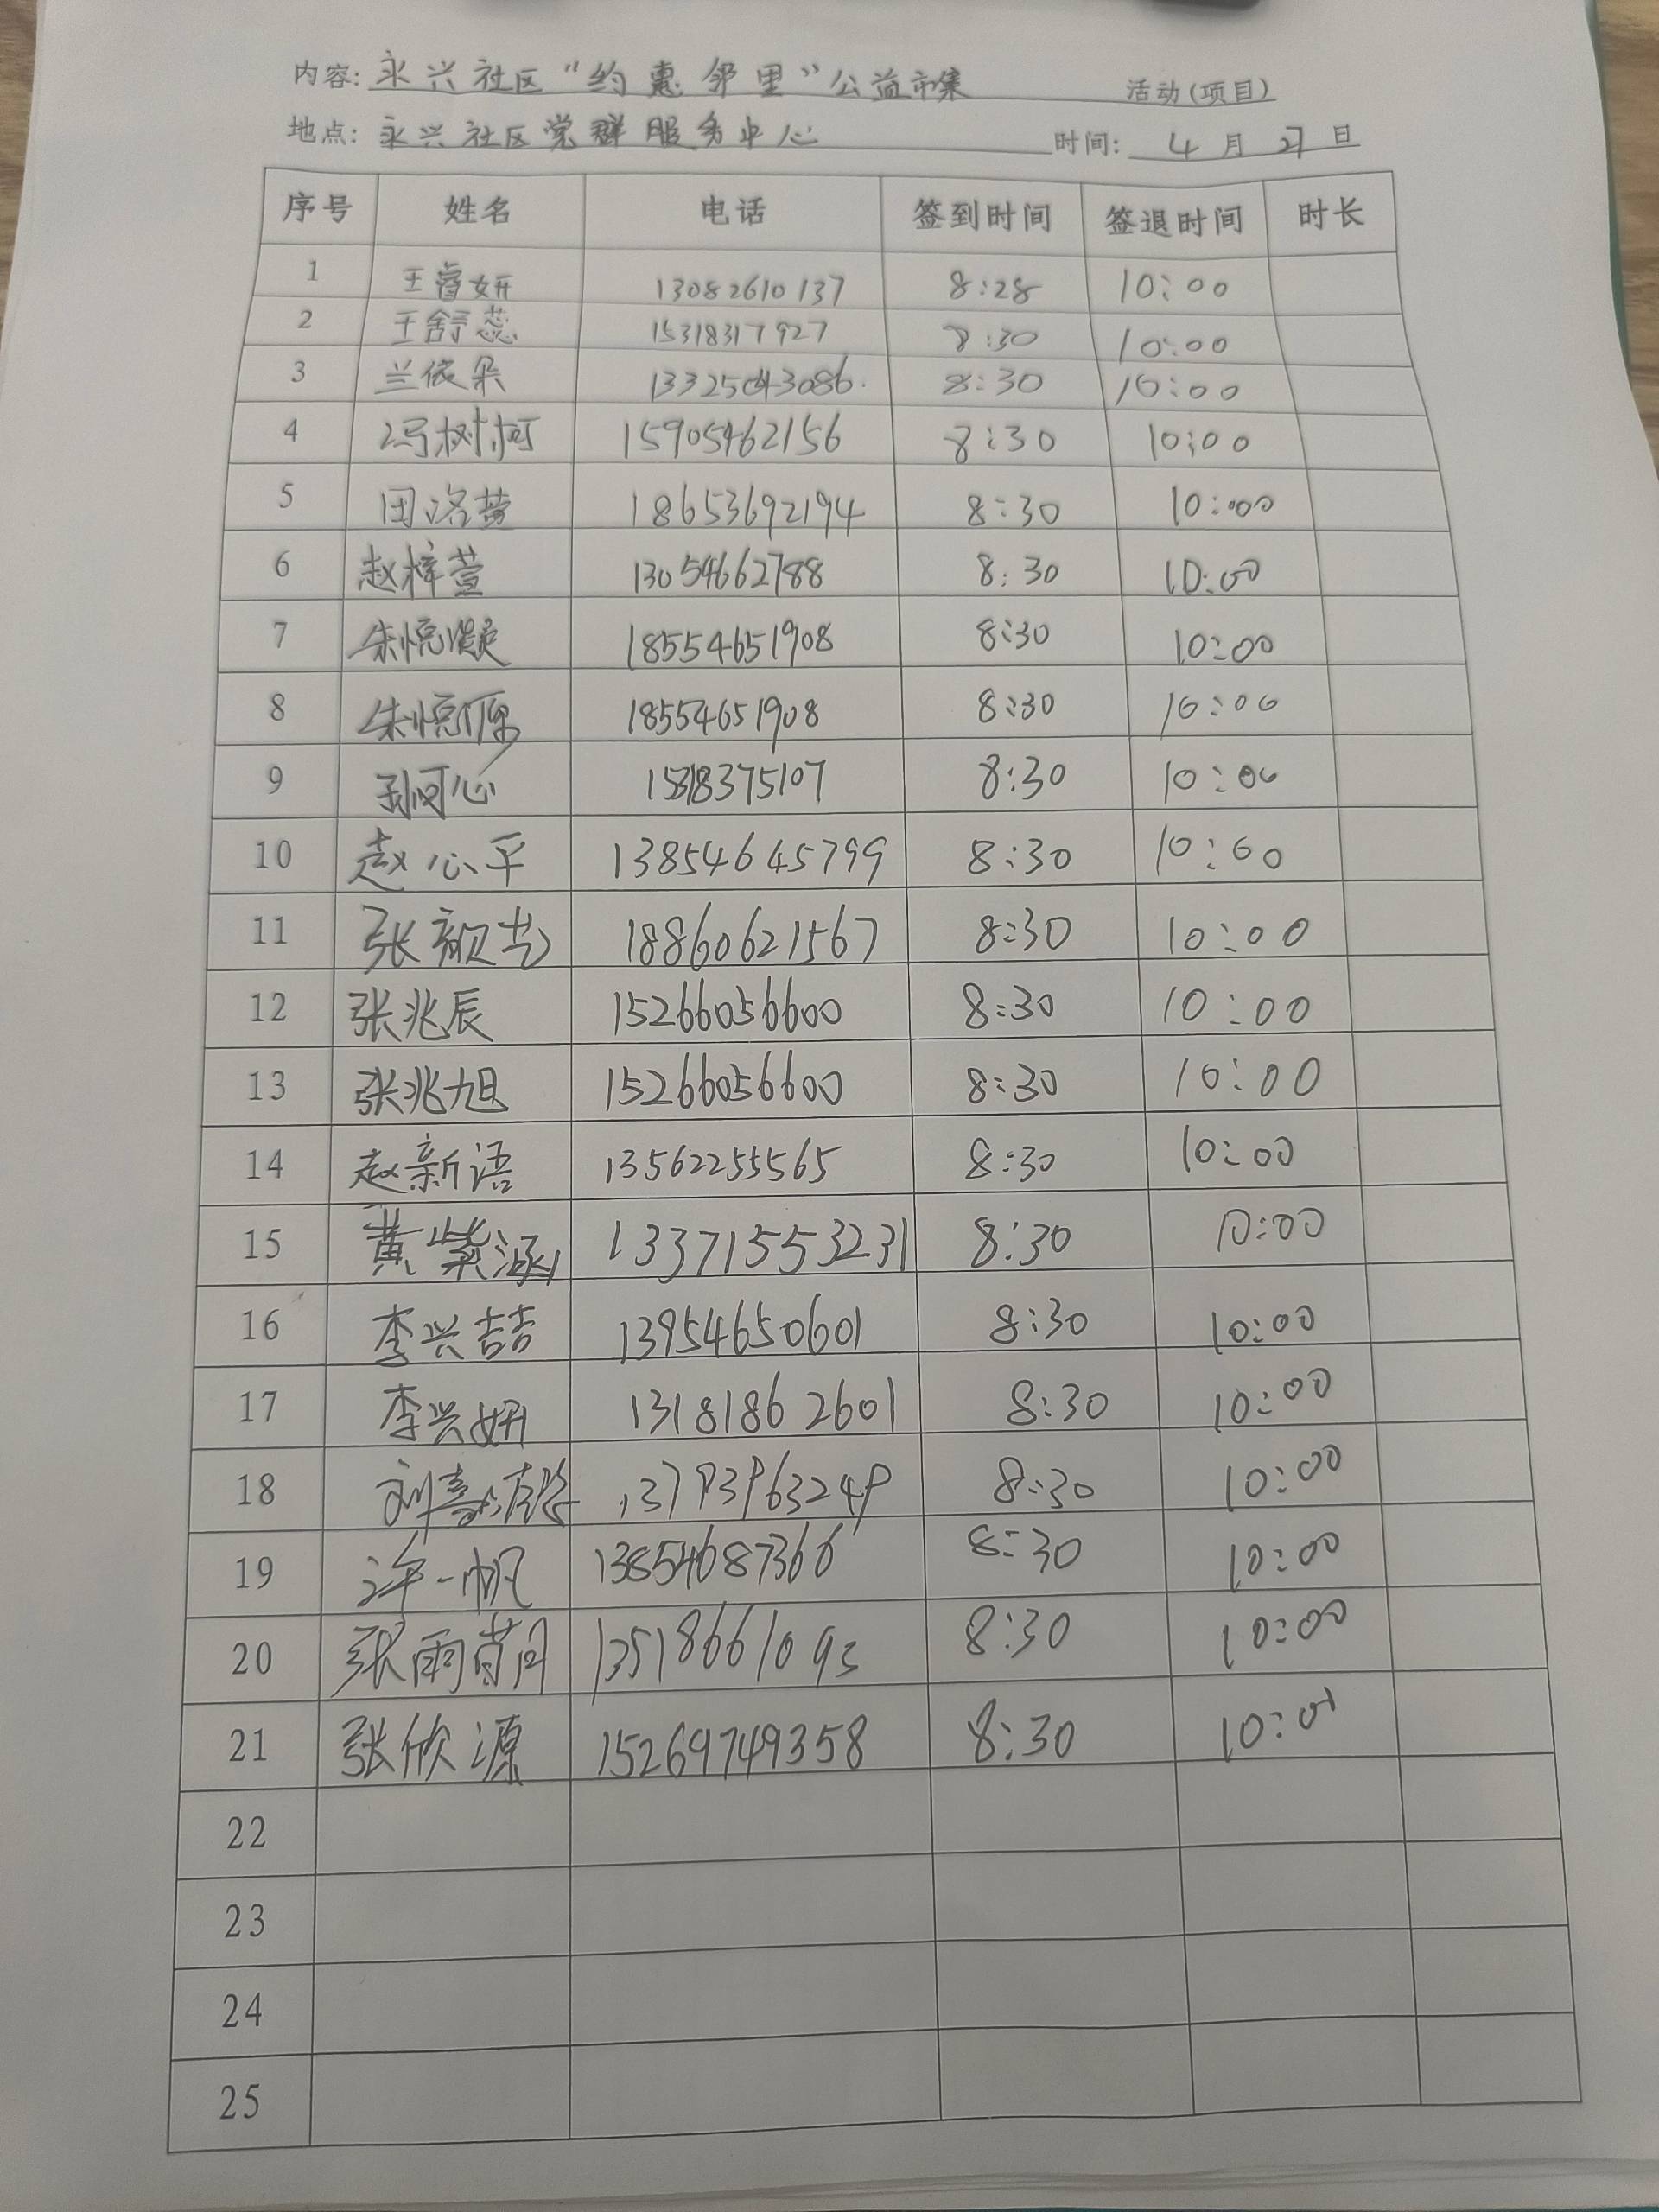 内容: 永兴社区“约惠邻里”公益市集 活动(项目)
地点: 永兴社区党群服务中心 时间: 4月27日
序号 姓名 电话 签到时间 签退时间 时长
1 王睿妍 13082610137 8:28 10:00
2 王舒蕊 15318317927 8:30 10:00
3 兰依朵 13325043086 8:30 10:00
4 冯树柯 15905462156 8:30 10:00
5 田洛萤 18653692194 8:30 10:00
6 赵梓萱 13054662788 8:30 10:00
7 18554651908 8:30 10:00
8 18554651908 8:30 10:00
9 孙可心 15318375107 8:30 10:00
10 赵心平 13854645799 8:30 10:00
11 18860621567 8:30 10:00
12 张兆辰 15266056600 8:30 10:00
13 张兆旭 15266056600 8:30 10:00
14 赵新语 13562255565 8:30 10:00
15 黄紫涵 13371553231 8:30 10:00
16 李兴喆 13954650601 8:30 10:00
17 李兴妍 13181862601 8:30 10:00
18 13793963249 8:30 10:00
19 许一帆 13854687366 8:30 10:00
20 13518661093 8:30 10:00
21 张欣源 15269749358 8:30 10:00
22
23
24
25